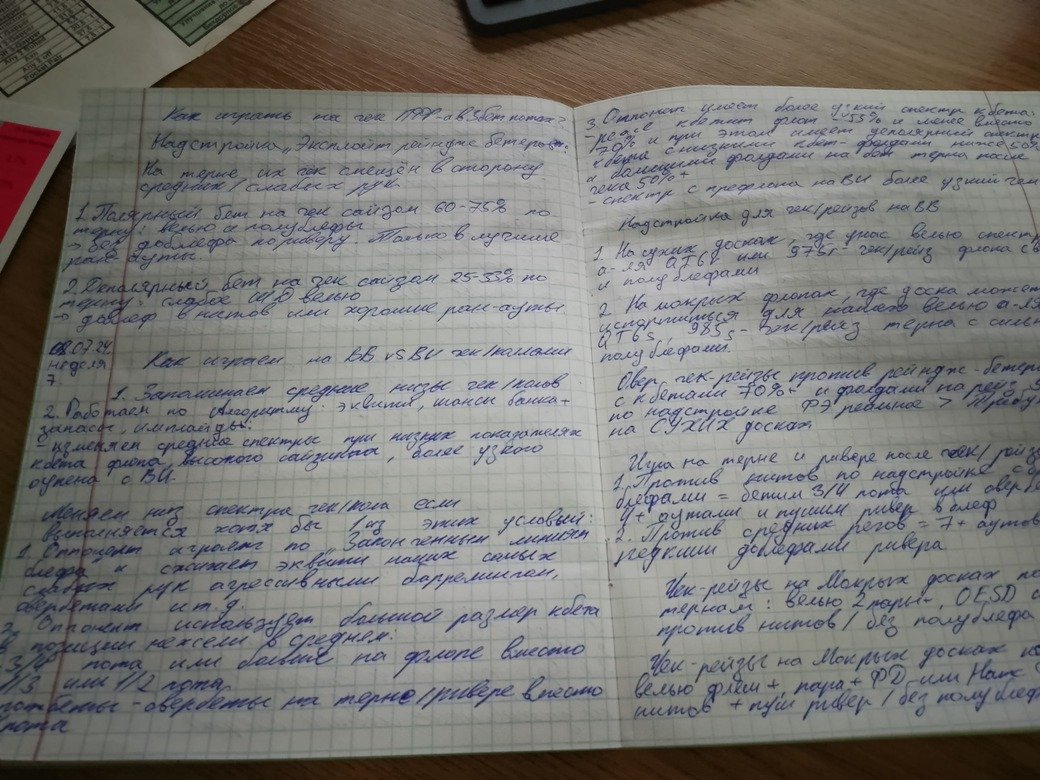 Как играть на чек ПФР-а в 3бет потах?
Надстройка „Эксплойт рейндж бетеров":
На терне их чек смещён в сторону
средних/слабых рук.
1. Полярный бет на чек сайзом 60-75% по
терну: велью и полублефы
→ без доблефа по риверу. Только в лучшие
ран-ауты.
2. Деполярный бет на чек сайзом 25-33% по
терну: слабое велью
→ доблеф в нитов или хорошие ран-ауты
08.07.24
неделя
7.
Как играем на BB vs BU чек/коллами
1. Запоминаем средние низы чек/колов
2. Работаем по алгоритму: эквити, шансы банка +
запасы, имплайды:
изменяем средние спектры при низких показателях
кбета флопа, высокого сайзинга, более узкого
оупена с BU.
Меняем низ спектра чек/кола если
выполняется хотя бы 1 из этих условий:
1. Оппонент играет по „Законченным линиям
блефа и сжигает эквити наших самых
слабых рук агрессивными баррелингом,
овербетами и т.д.
2. Оппонент использует большой размер кбета
в позиции нежели в среднем:
3/4 пота или больше на флопе вместо
1/3 или 1/2 пота
потбеты - овербеты на терне/ривере вместо
пота
3. Оппонент имеет более узкий спектр кбета:
- реже кбетит флоп 55% и менее вместо
70% и при этом имеет деполярный спектр
кбета с низкими кбет-фолдами ниже 50%
и большими фолдами на бет терна после
чека 50%+
- спектр с префлопа на BU более узкий чем
Надстройка для чек/рейзов на BB
1. На сухих досках, где у нас велью спектр
а-ля QT6r или 975r - чек/рейз флопа с в
и полублефами
2. На мокрых флопах, где доска может
испортиться для нашего велью а-ля
QT6s, 985s - чек/рейз терна с сильн
полублефами.
Овер чек-рейзы против рейндж-бетеров
с кбетами 70%+ и фолдами на рейз 5
по надстройке ФЭ реальное > Требу
на СУХИХ досках
Игра на терне и ривере после чек/рейза
1. Против нитов по надстройке с
блефами = бетим 3/4 пота или овербе
4+ аутами и пушим ривер в блеф
2. Против средних регов = 7+ аутов
редкими доблефами ривера
Чек-рейзы на Мокрых досках по
тернам: велью 2 пары+, OESD
против нитов / без полублефа
Чек-рейзы на Мокрых досках
велью флеш+, пара+ФД или Натс
нитов + пуш ривер / без полублеф